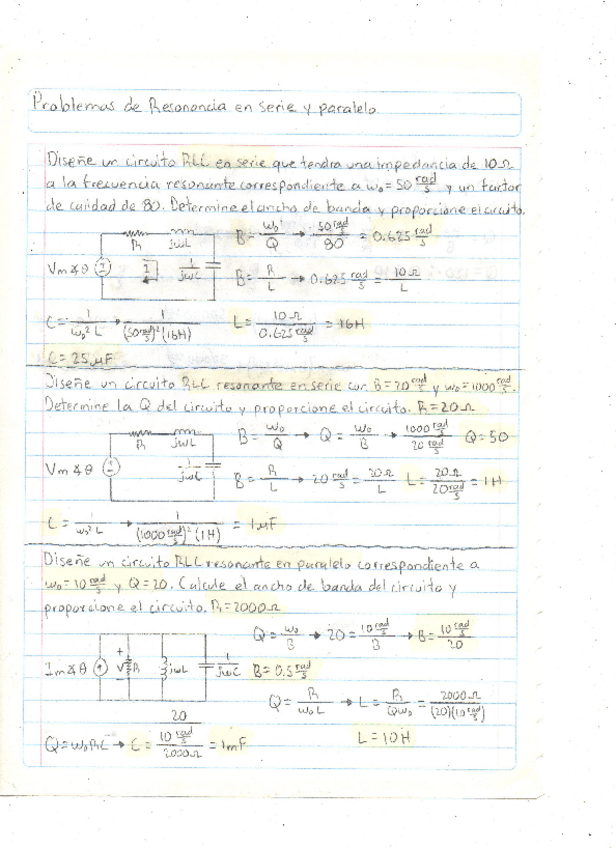 Problemas de Resonancia en serie y paralelo
Diseñe un circuito RLC en serie que tendra una impedancia de 10Ω
a la frecuencia resonante correspondiente a ω₀=50 rad/s y un factor
de calidad de 80. Determine el ancho de banda y proporcione el circuito.
R jωL B= ω₀/Q → (50 rad/s)/80 = 0.625 rad/s
Vm∡θ I 1/jωC B= R/L → 0.625 rad/s = 10Ω/L
C= 1/(ω₀²L) → 1/((50 rad/s)²(16H)) L= 10Ω/(0.625 rad/s) = 16H
C= 25μF
Diseñe un circuito RLC resonante en serie con B=20 rad/s y ω₀=1000 rad/s.
Determine la Q del circuito y proporcione el circuito. R=20Ω
R jωL B= ω₀/Q → Q= ω₀/B → (1000 rad/s)/(20 rad/s) Q=50
Vm∡θ 1/jωC B= R/L → 20 rad/s = 20Ω/L L= 20Ω/(20 rad/s) = 1H
C= 1/(ω₀²L) → 1/((1000 rad/s)²(1H)) = 1μF
Diseñe un circuito RLC resonante en paralelo correspondiente a
ω₀=10 rad/s y Q=20. Calcule el ancho de banda del circuito y
proporcione el circuito. R=2000Ω
Q= ω₀/B → 20= (10 rad/s)/B → B= (10 rad/s)/20
Im∡θ + V - R jωL 1/jωC B=0.5 rad/s
Q= R/(ω₀L) → L= R/(Qω₀) = 2000Ω/((20)(10 rad/s))
Q=ω₀RC → C= (20/(10 rad/s))/2000Ω = 1mF L=10H